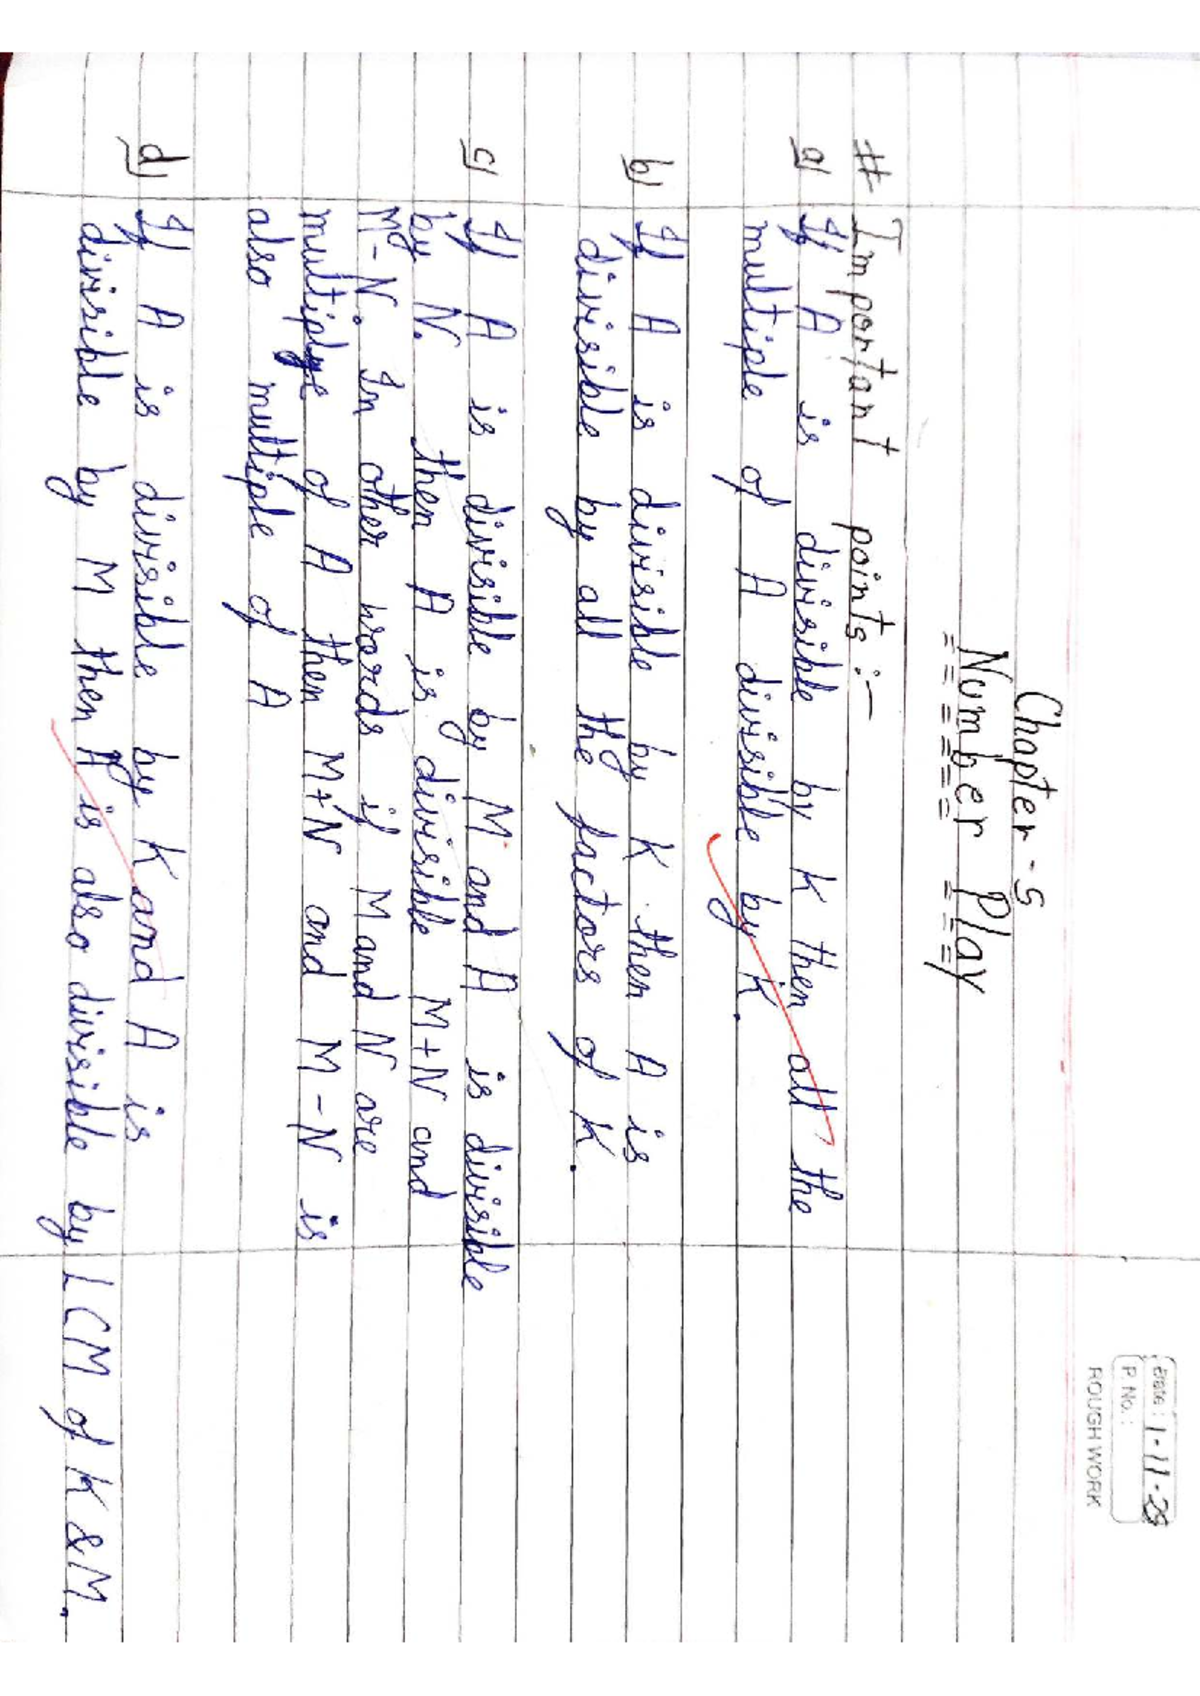 Date : 1-11-25
P. No. :
ROUGH WORK
Chapter - 5
Number Play
# Important points :-
a) If A is divisible by K then all the
multiple of A divisible by K.
b) If A is divisible by K then A is
divisible by all the factors of K.
c) If A is divisible by M and A is divisible
by N. then A is divisible M+N and
M-N. In other words if M and N are
multiple of A then M+N and M-N is
also multiple of A
d) If A is divisible by K and A is
divisible by M then A is also divisible by LCM of K & M.